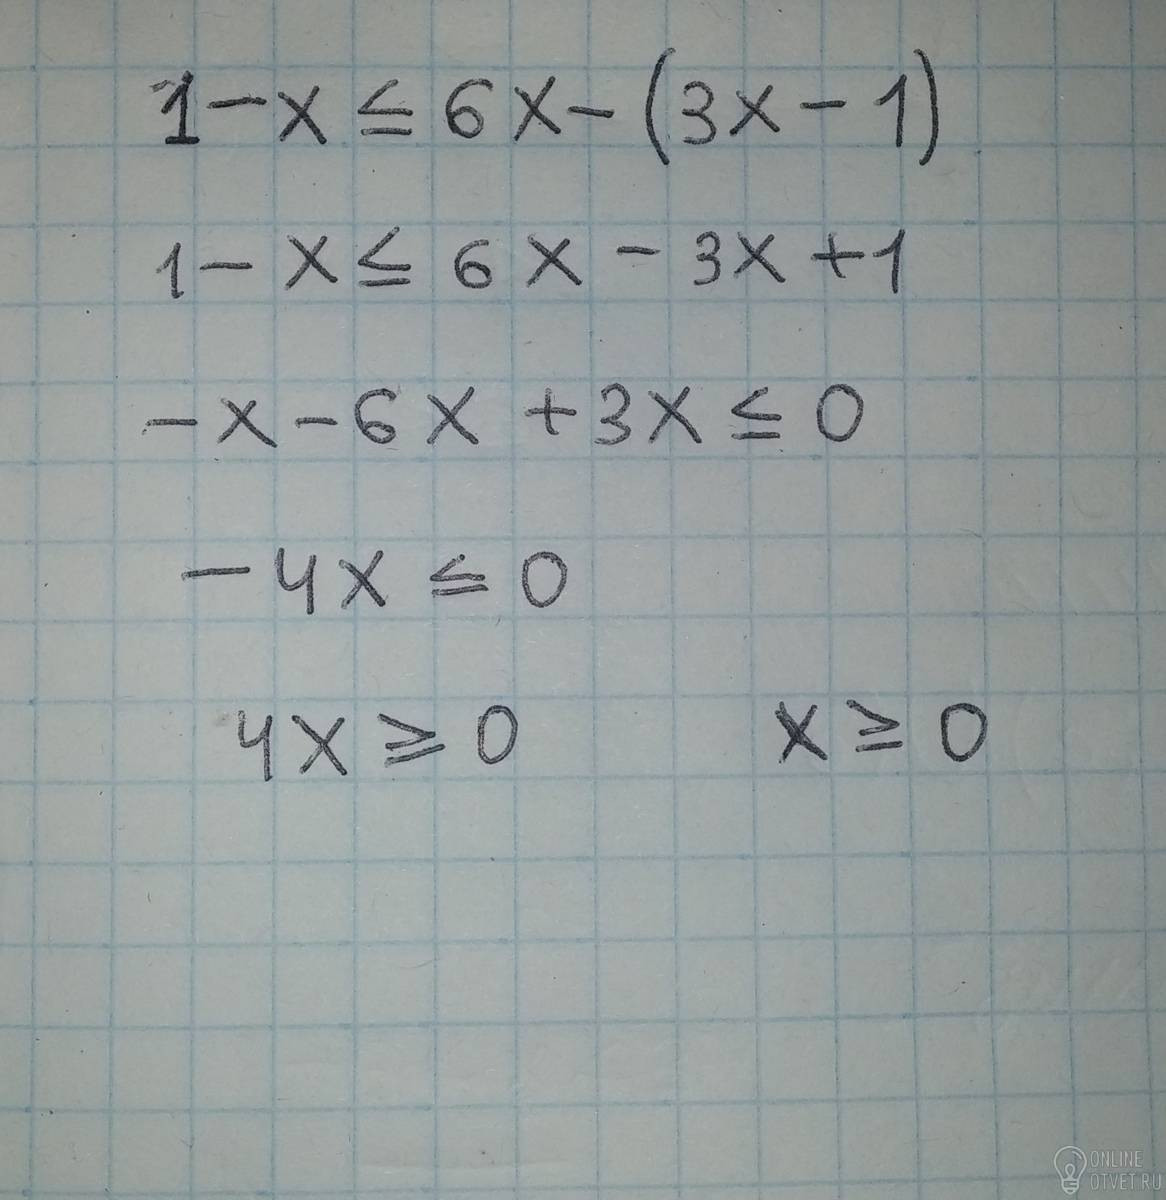 1 - x ≤ 6x - (3x - 1)
1 - x ≤ 6x - 3x + 1
-x - 6x + 3x ≤ 0
-4x ≤ 0
4x ≥ 0 x ≥ 0
ONLINE
OTVET.RU